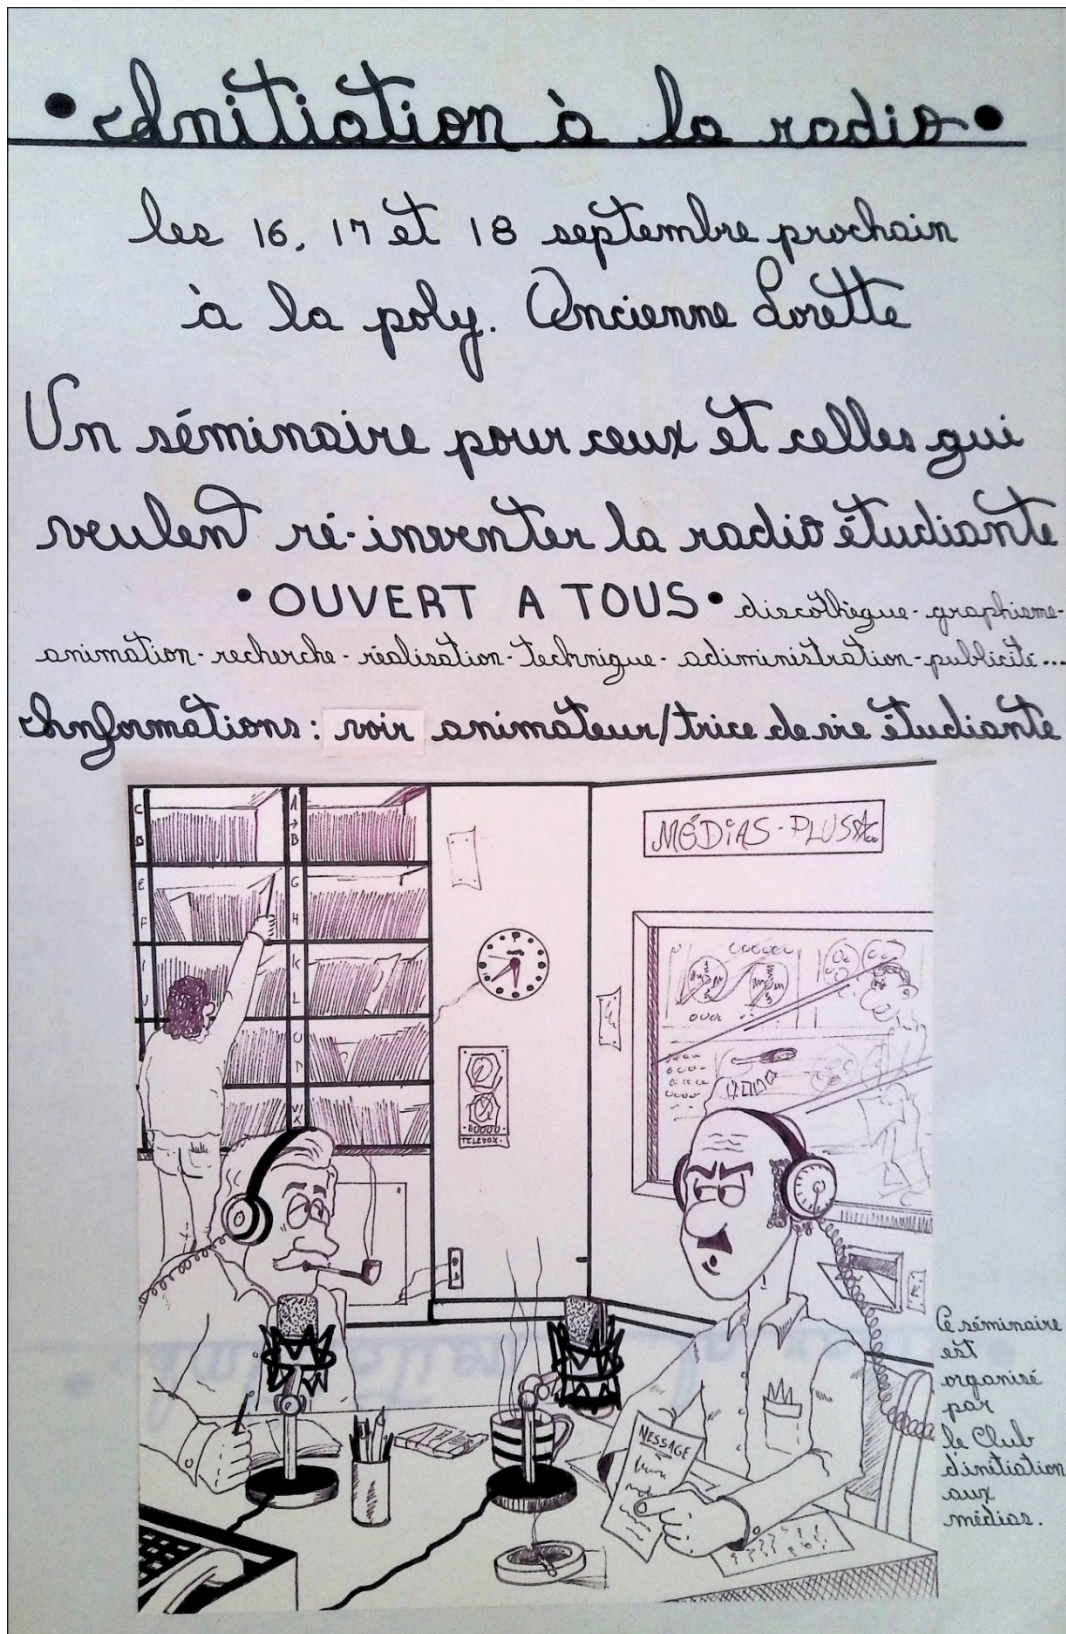 • Initiation à la radio •
les 16, 17 et 18 septembre prochain
à la poly. Ancienne Lorette
Un séminaire pour ceux et celles qui
veulent ré-inventer la radio étudiante
• OUVERT A TOUS • discothèque - graphisme -
animation - recherche - réalisation - technique - adiministration - publicité...
Informations : voir animateur/trice de vie étudiante
C
D
E
F
I
J
A → B
G
H
K
L
MÉDIAS - PLUS
TELEVOX
MESSAGE
Ce séminaire
est
organisé
par
le Club
d'initiation
aux
médias.